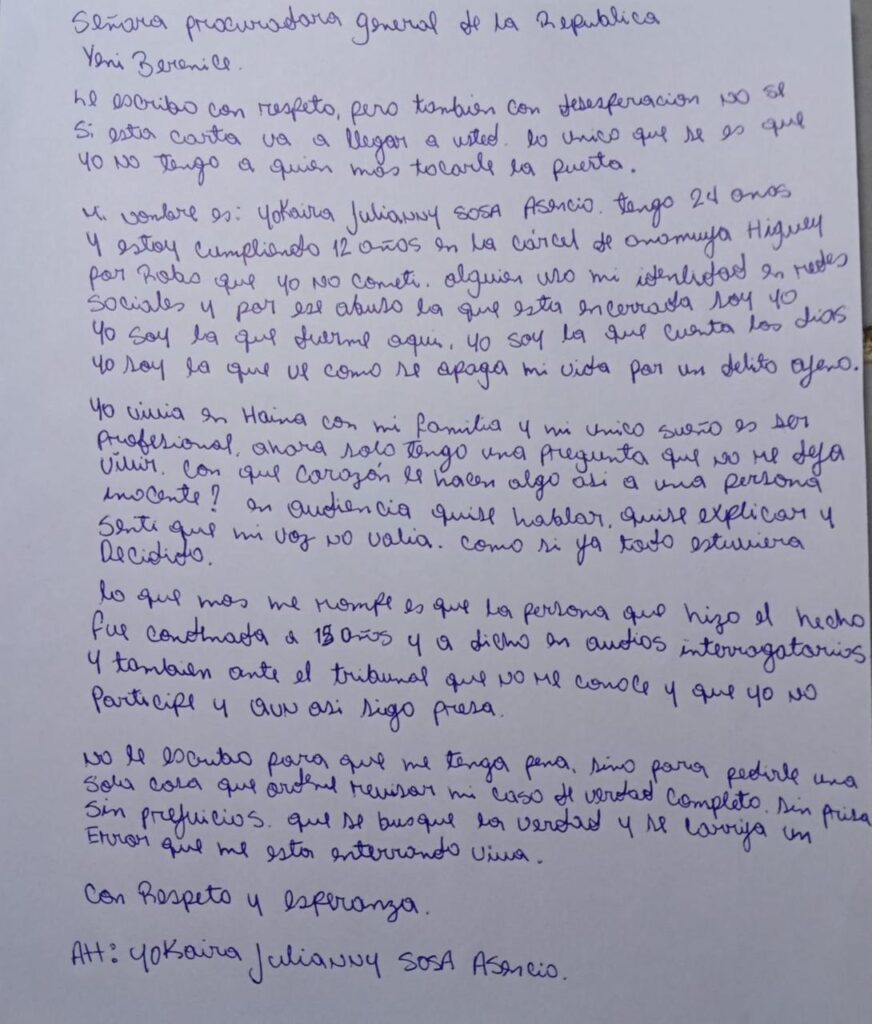 Señara procuradara general de la Republica
Yeni Berenice.
Le escribo con respeto, pero tambien con desesperacion NO se
Si esta carta va a llegar a usted. lo unico que se es que
yo NO tengo a quien mas tocarle la puerta.
Mi nombre es: Yokaira Julianny SOSA Asencio. tengo 24 anos
Y estoy cumpliendo 12 años en la cárcel de anamuya Higuey
por Robo que yo NO cometi. alguien uso mi identidad en redes
Sociales y por ese abuso la que esta encerrada soy yo
Yo soy la que duerme aqui, yo soy la que cuenta los dias
Yo soy la que ve como se apaga mi vida por un delito ajeno.
Yo vivia en Haina con mi familia y mi unico sueño es ser
profesional, ahora solo tengo una pregunta que no me deja
vivir. con que corazón le hacen algo asi a una persona
inocente? en audiencia quise hablar, quise explicar y
Senti que mi voz NO valia. como si ya todo estuviera
Decidido.
lo que mas me rompe es que la persona que hizo el hecho
fue condenada a 15 años y a dicho en audios interrogatorios
Y tambien ante el tribunal que NO me conoce y que yo NO
Participe y aun asi sigo presa.
NO le escribo para que me tenga pena, sino para pedirle una
Sola cosa que ordene revisar mi caso de verdad completo. sin prisa
Sin prejuicios. que se busque la verdad y se corrija un
Error que me esta enterrando viva.
Con Respeto y esperanza.
Att: Yokaira Julianny SOSA Asencio.